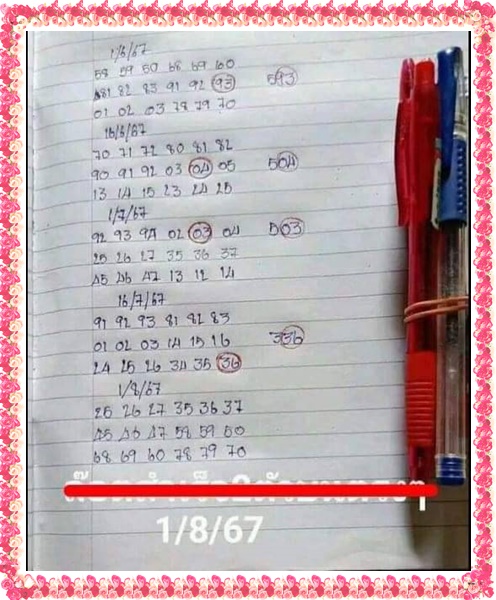 1/6/67
58 59 50 68 69 60
81 82 83 91 92 93 593
01 02 03 78 79 70
16/6/67
70 71 72 80 81 82
90 91 92 03 04 05 504
13 14 15 23 24 25
1/7/67
92 93 94 02 03 04 503
25 26 27 35 36 37
45 46 47 13 12 14
16/7/67
91 92 93 81 82 83
01 02 03 14 15 16 336
24 25 26 34 35 36
1/8/67
25 26 27 35 36 37
45 46 47 58 59 50
68 69 60 78 79 70
1/8/67